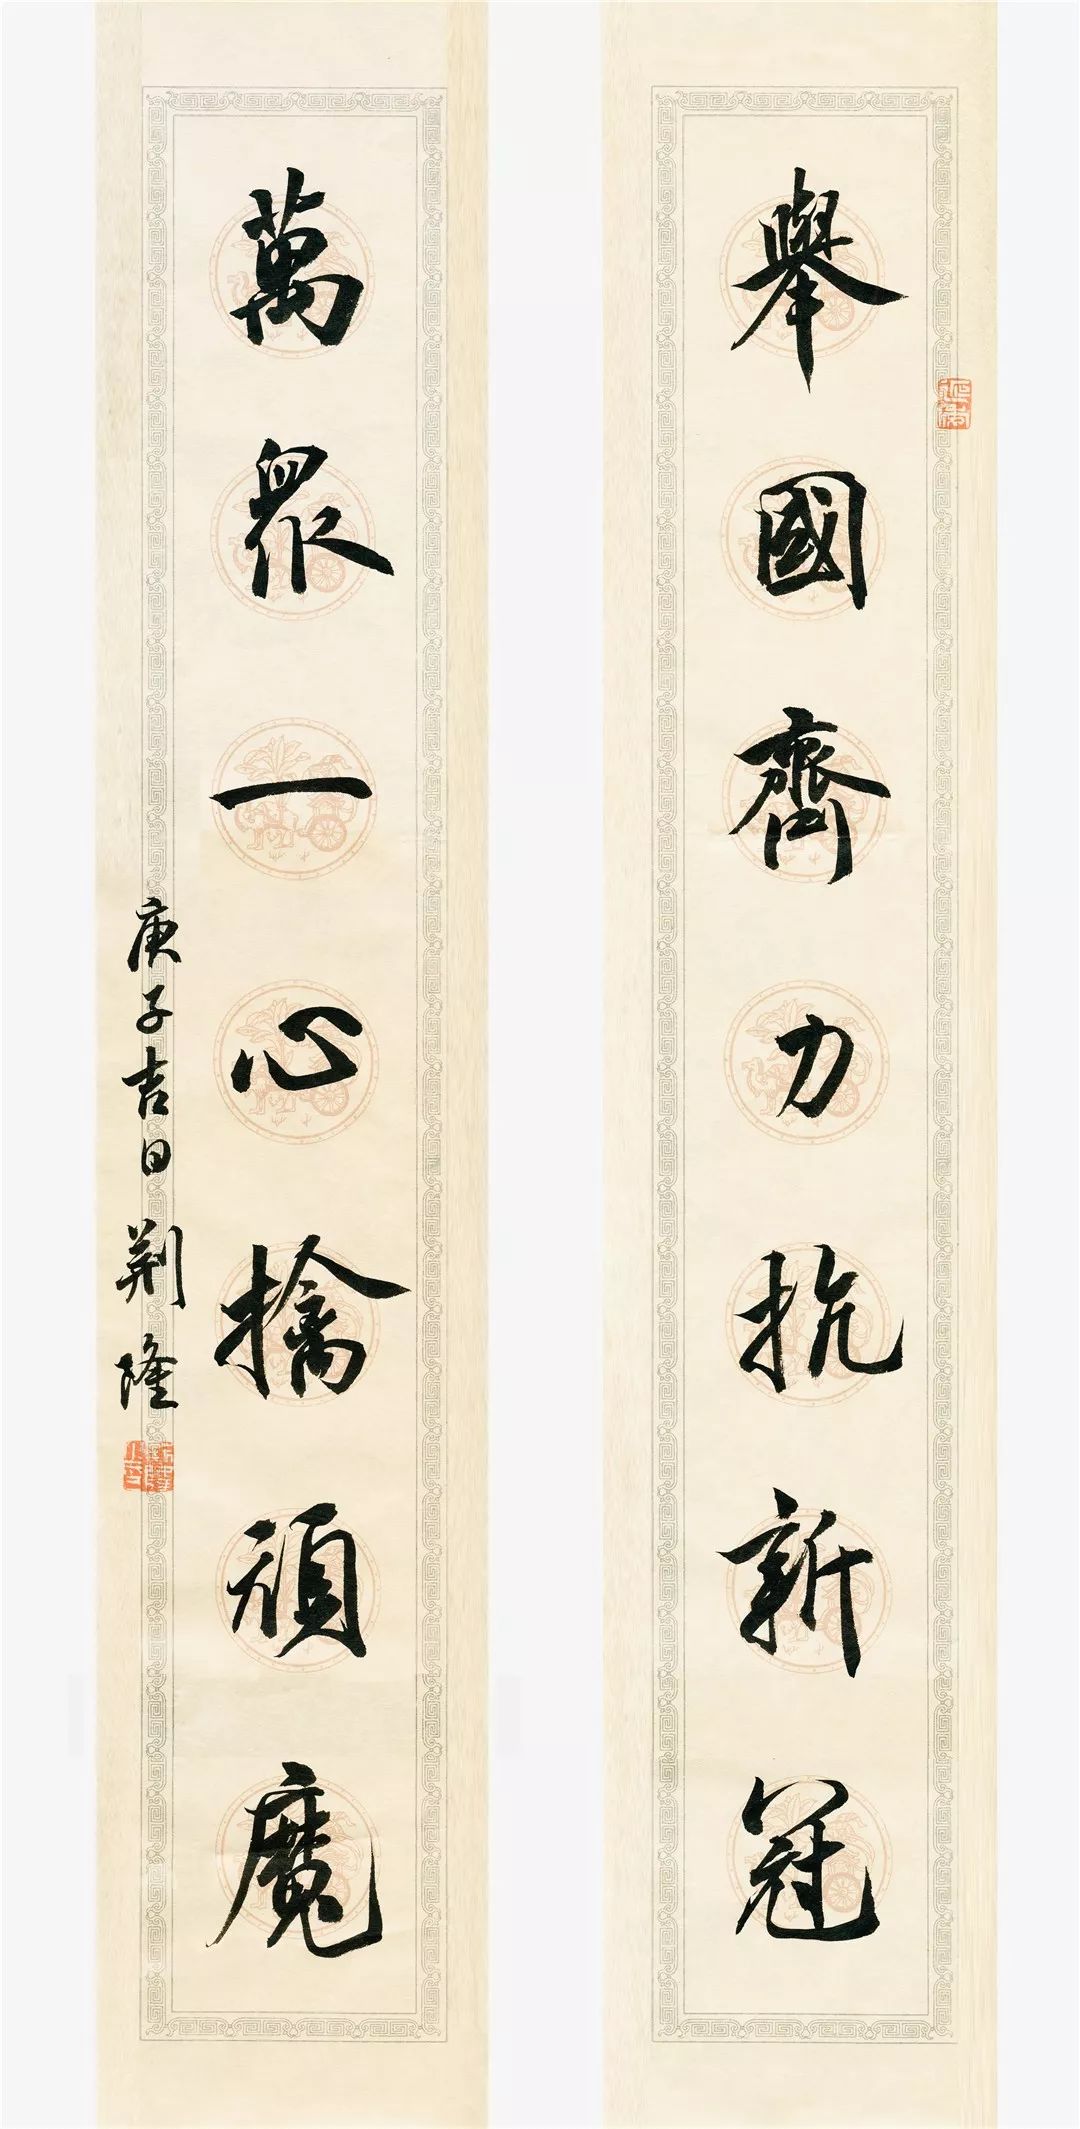 舉國齊力抗新冠
萬眾一心擒頑魔
庚子吉日 荆隆